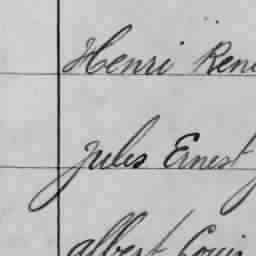 Henri René
Jules Ernest
Albert Louis